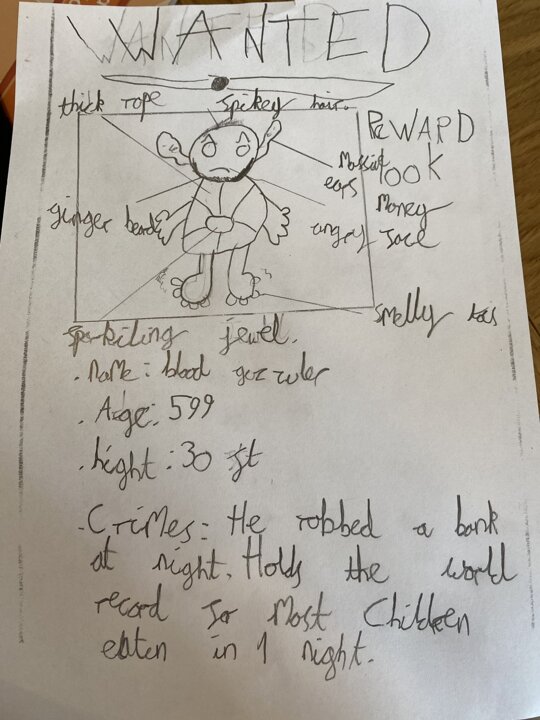 WANTED
thick rope spikey hair.
REWARD
Massive ears
100k
Money
ginger beard
angry face
smelly toes
sparkiling jewel.
. name: blood guzzuler
. Age: 599
. hight: 30 ft
. Crimes: He robbed a bank
at night. Holds the world
record for most Children
eaten in 1 night.